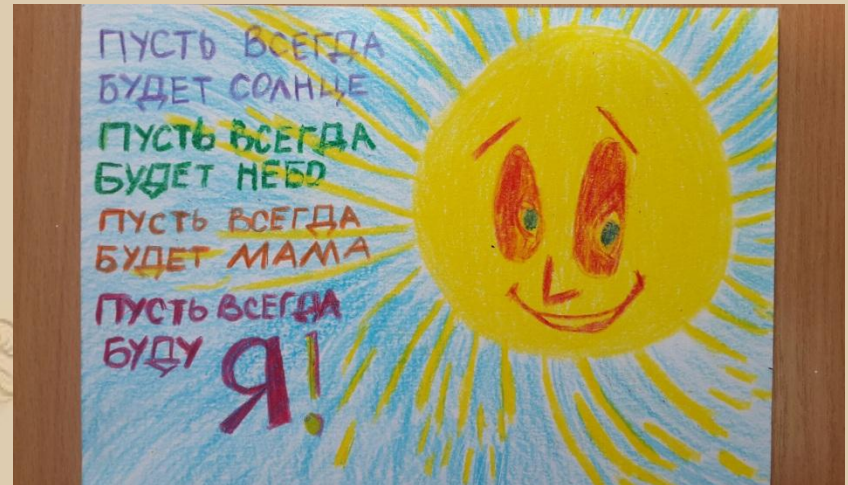 ПУСТЬ ВСЕГДА
БУДЕТ СОЛНЦЕ
ПУСТЬ ВСЕГДА
БУДЕТ НЕБО
ПУСТЬ ВСЕГДА
БУДЕТ МАМА
ПУСТЬ ВСЕГДА
БУДУ Я!